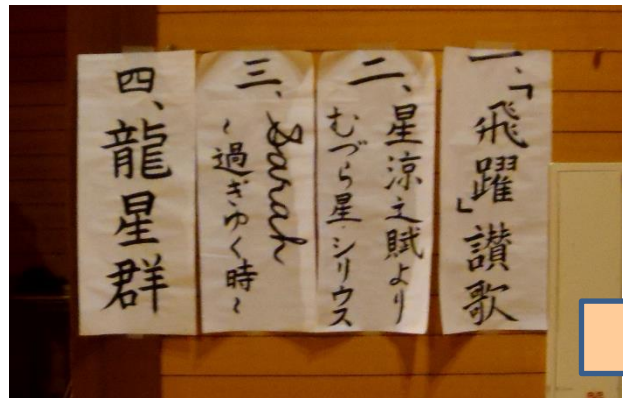 一、「飛躍」讃歌
二、星涼之賦より
むづら星・シリウス
三、Sarah
~過ぎゆく時~
四、龍星群